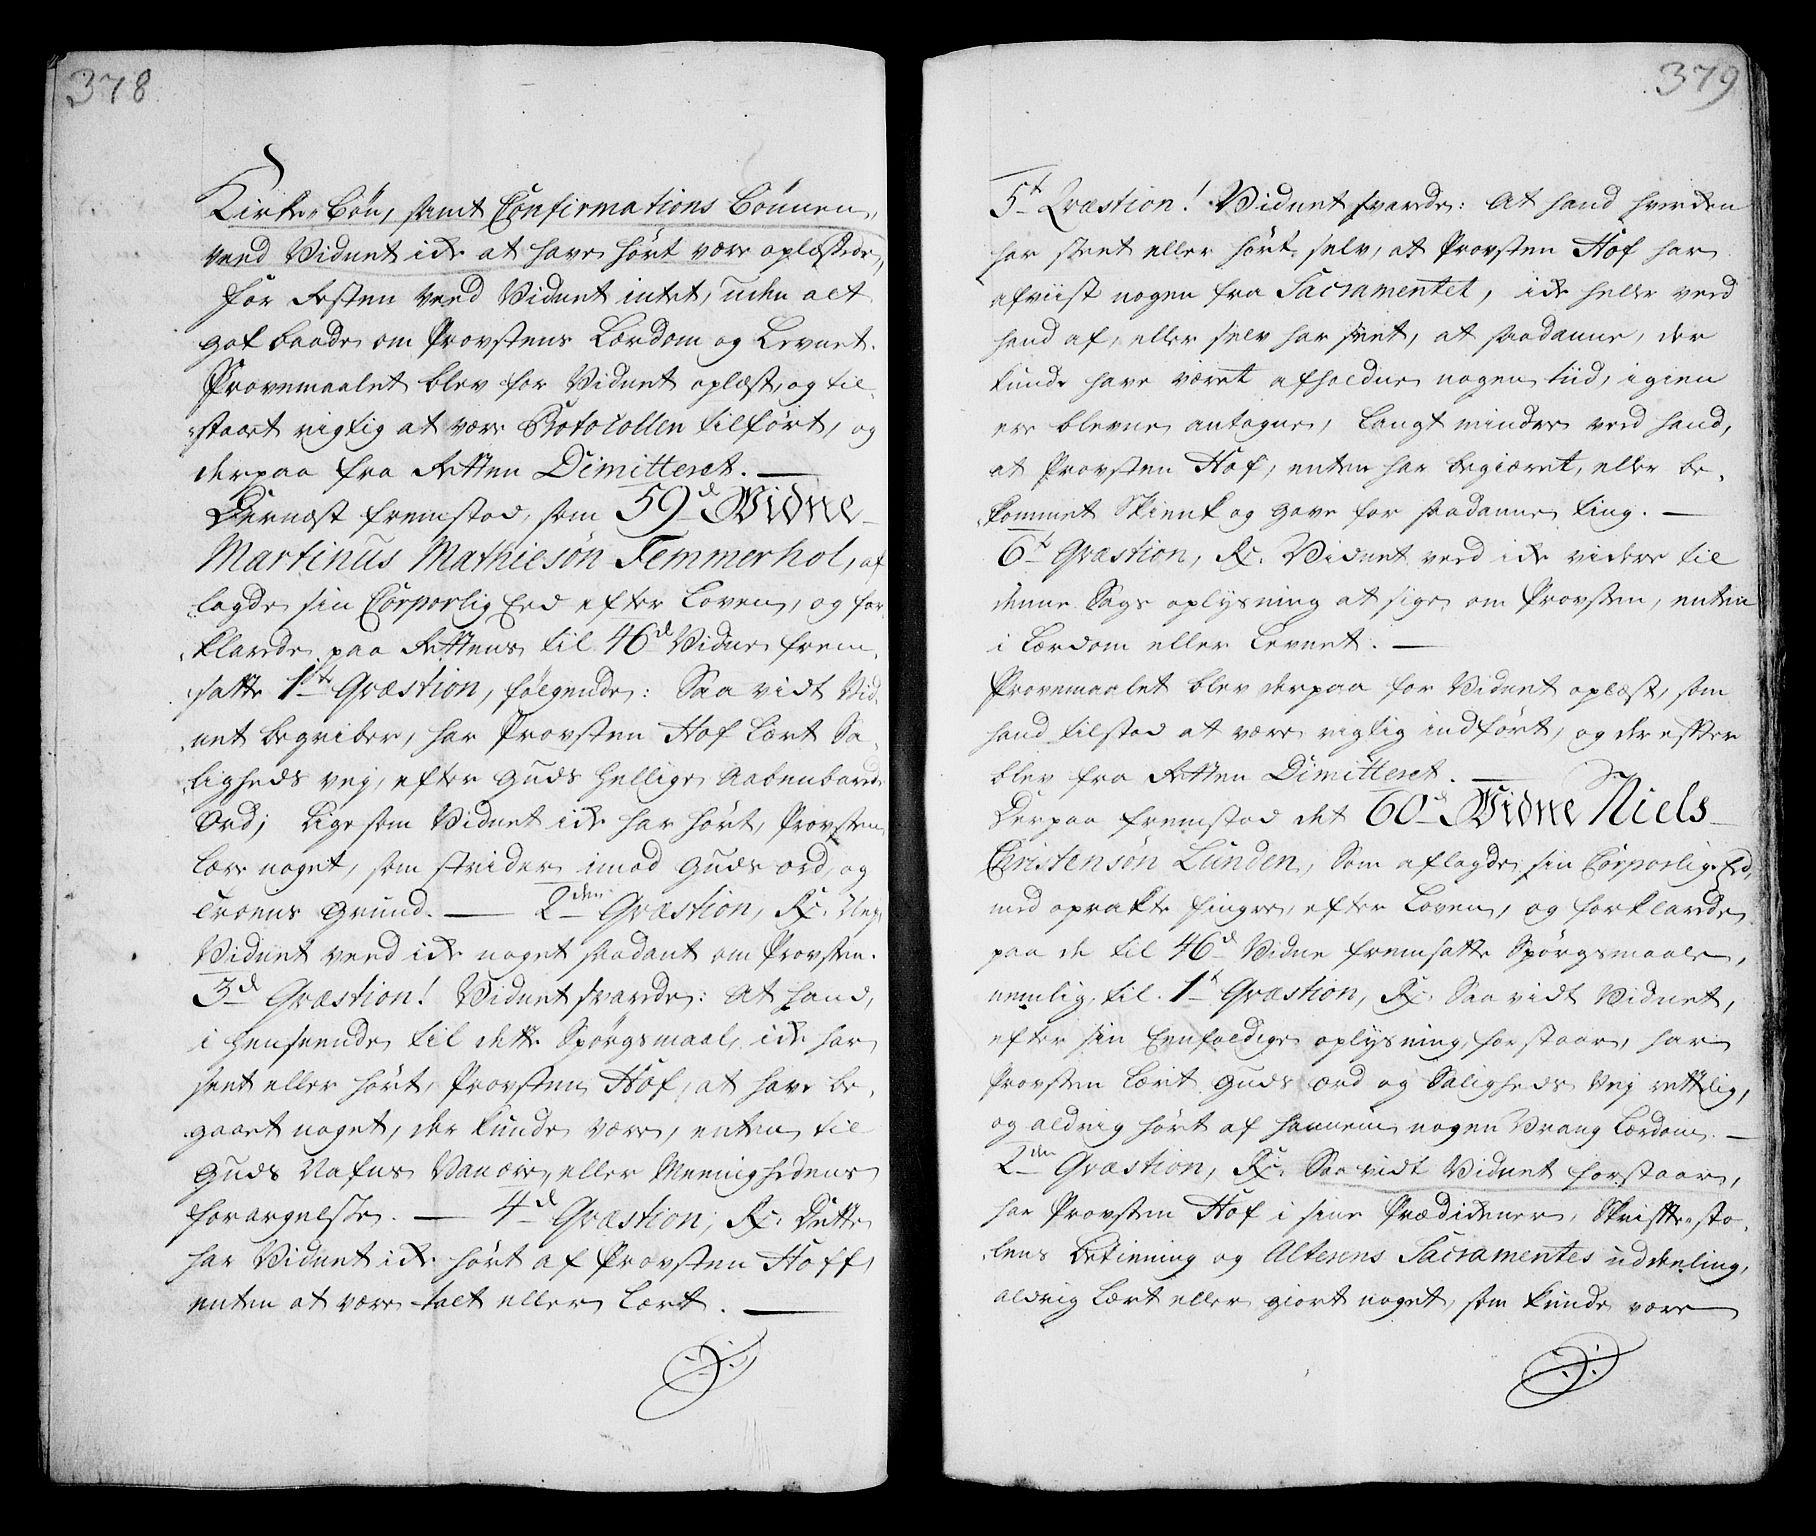 378
Kirke-Bøn, samt Confirmations Bønnen,
veed Vidnet icke at have hørt være oplæste,
for Resten veed Vidnet intet, uden alt
got baade om Provstens Lærdom og Levnet.
Provemaalet blev for Vidnet oplæst, og til-
staaet rigtig at være Protocollen tilført, og
derpaa fra Retten Dimitteret. —
Dernæst fremstod, som 59d Vidne
Martinus Mathiesøn Temmerhol, af
lagde sin Corporlig Eed efter Loven, og for
klarede paa Rettens til 46d Vidne frem-
satte 1te Qvæstion, følgende: Saa vidt Vid-
net begriber, har Provsten Hof lært Sa-
ligheds vej, efter Guds hellige Aabenbarede
Ord; Ligesom Vidnet icke har hørt, Provsten
lære noget, som strider imod Guds ord, og
Troens Grund. — 2den Qvæstion, Rx: Nej,
Vidnet veed icke noget saadant om Provsten.
3d Qvæstion! Vidnet svarede: At hand,
i henseende til dette Spørgsmaal, icke har
seet eller hørt, Provsten Hof, at have be-
gaaet noget, der kunde være, enten til
Guds Nafns Vanære, eller Meenighedens
forargelse. — 4d Qvæstion, Rx: Dette
har Vidnet icke hørt af Provsten Hoff,
enten at være talt eller lært. —
379
5t Qvæstion! Vidnet svarede: At hand hverken
har seet eller hørt selv, at Provsten Hof har
afviist nogen fra Sacramentet, icke heller veed
hand af, eller selv har seet, at saadanne, der
kunde have været afholdne nogen tiid, igien
ere blevne antagne, langt mindre veed hand,
at Provsten Hof, enten har begiæret, eller be-
kommet Skienk og Gave for saadanne ting. —
6t Qvæstion, Rx: Vidnet veed icke videre til
denne Sags oplysning at sige om Provsten, enten
i Lærdom eller Levnet. —
Provemaalet blev derpaa for Vidnet oplæst, som
hand tilstod at være rigtig indført, og derefter
blev fra Retten Dimitteret. —
Derpaa fremstod det 60d Vidne Niels
Christensøn Lunden, Som aflagde sin Corporlig Eed,
med oprakte fingre, efter Loven, og forklarede
paa de til 46d Vidne fremsatte Spørgsmaale,
nemlig, til 1t Qvæstion, Rx: Saa vidt Vidnet,
efter sin Eenfoldige oplysning, forstaar, har
Provsten lært Guds ord og Saligheds Vej rettelig,
og aldrig hørt af hannem nogen Vrang Lærdom. —
2den Qvæstion, Rx: Saa vidt Vidnet forstaar,
har Provsten Hof i sine Prædickener, Skrifte-sto-
lens betiening og Alterens Sacramentes uddeeling,
aldrig lært eller giort noget, som kunde være